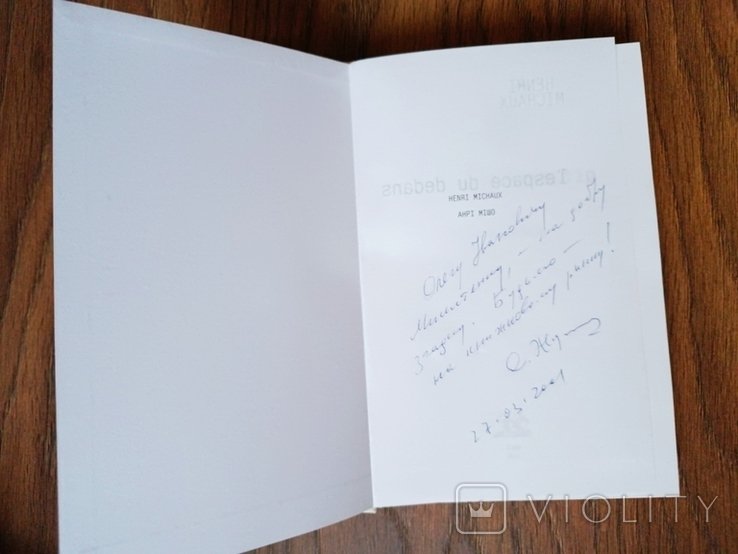 HENRI
MICHAUX
l'espace du dedans
HENRI MICHAUX
АНРІ МІШО
Олегу Івановичу
– на добру
згадку. Будьмо –
на книжковому ринку!
С.
27.03.2001
VIOLITY